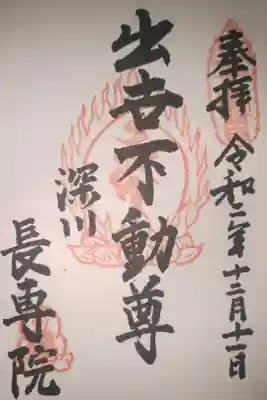 奉拝
令和二年十二月十一日
出世不動尊
深川
長専院